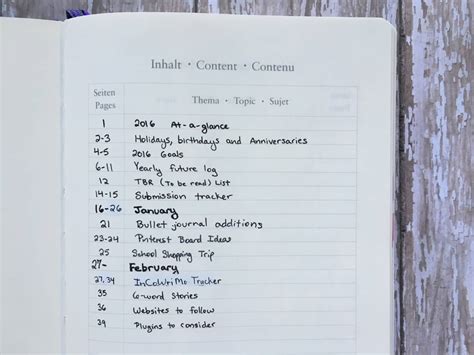 Inhalt • Content • Contenu
Seiten
Pages
Thema • Topic • Sujet
1 2016 At-a-glance
2-3 Holidays, birthdays and Anniversaries
4-5 2016 Goals
6-11 Yearly future log
12 TBR (To be read) List
14-15 Submission tracker
16-26 January
21 Bullet journal additions
23-24 Pinterest Board Ideas
25 School Shopping Trip
27- February
27, 34 InCoWriMo Tracker
35 6-word Stories
36 Websites to follow
39 Plugins to consider